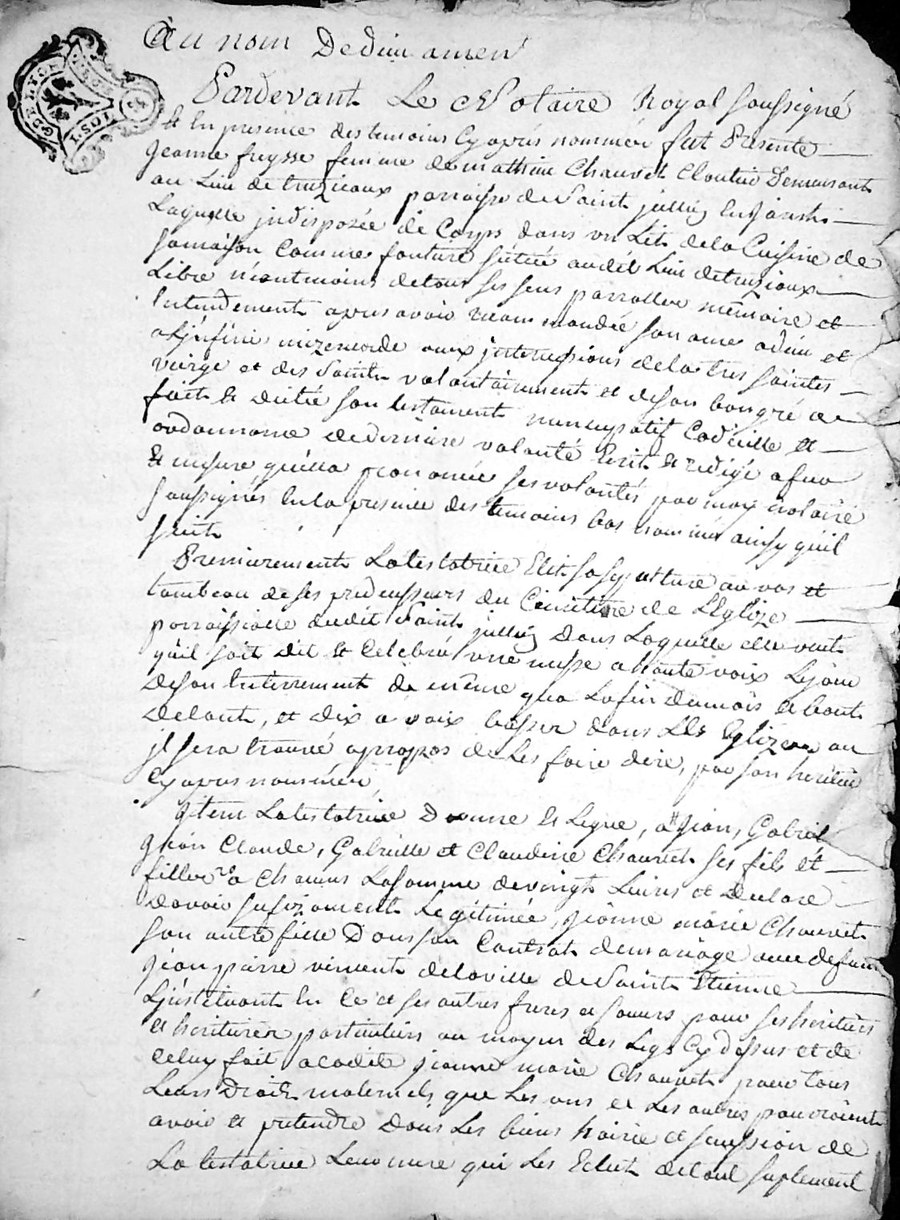 Au nom de dieu amen
Pardevant Le Notaire Royal soussigné
& En presence des temoins Cy aprés nommés fut Presente
Jeanne fuysse femme de mathieu Chauvet Cloutier Demeurant
au Lieu de truzieaux parroisse de Saint jullien En
Laquelle jndisposée de Corps dans un Lit de la Cuisine de
sa maison Comme située audit Lieu de truzioux
Libre neantmoins de tous ses sens parrolle memoire et
Entendement apres avoir recommandée son ame a dieu et
misericorde aux jntercessions de la tres sainte
vierge et des Saints volontairement et de son bon gré a
fait & dictée son testament nuncupatif Codicille et
ordonnance de derniere volonté Ecrit & redigé a fur
& mesure quelle a prononcée ses volontés par moy notaire
soussignés En la presence des temoins bas nommés ainsy quil
suit
Premierement La testatrice Elit sa sepulture au vas et
tombeau de ses predecesseurs du Cimetiere de LEglize
parroissialle dudit Saint jullien dans Laquelle elle veut
quil soit dit & Celebré une messe a haute voix Le jour
de son Enterrement de même qua La fin du mois & bout
de lant, et dix a voix basses dans Les Eglizes ou
jl sera trouvé apropos de Les faire dire, par son heritier
Cy apres nommé
jtem La testatrice Donne & Legue, a jean, Gabriel
jean Claude, Gabrielle et Claudine Chauvet ses fils et
filles a Chacuns La somme de vingt Livres et declare
davoir sufizament Legitimée, jeanne marie Chauvet
son autre fille Dans son Contrat de mariage avec defunt
jean pierre vincent de la ville de Saint Etienne
Ljnstituant En Ce et ses autres freres et soeurs pour ses heritiers
et heritieres particuliers au moyen des Legs Cy dessus et de
Celuy fait a ladite jeanne marie Chauvet pour tous
Leurs Droits maternels que Les uns et Les autres pouroient
avoir & pretendre Dans Les biens hoirie et sucession de
La testatrice Leur mere qui Les Exclut de tout suplement